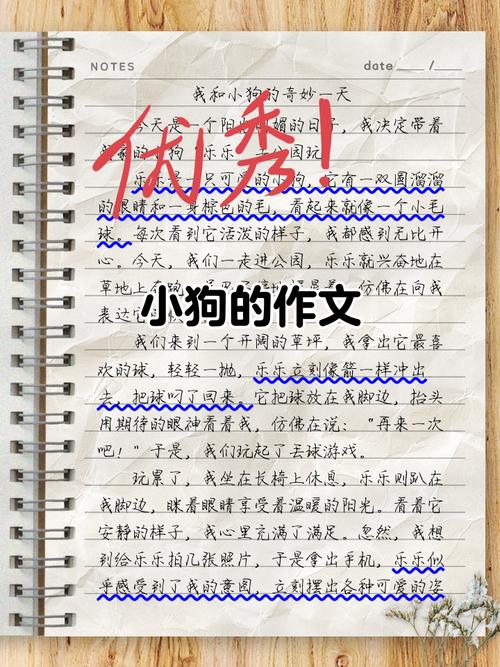 NOTES
date /
我和小狗的奇妙一天
优秀!
今天是一个阳光明媚的日子，我决定带着
小狗 乐乐 公园玩
乐乐是一只可爱的小狗，它有一双圆溜溜
的眼睛和一身棕色的毛，看起来就像一个小毛
球。每次看到它活泼的样子，我都感到无比开
心。今天，我们一走进公园，乐乐就兴奋地在
草地上 仿佛在向我
小狗的作文
表达它
我们来到一个开阔的草坪，我拿出它最喜
欢的球，轻轻一抛，乐乐立刻像箭一样冲出
去，把球叼了回来。它把球放在我脚边，抬头
用期待的眼神看着我，仿佛在说：“再来一次
吧！”于是，我们玩起了丢球游戏。
玩累了，我坐在长椅上休息，乐乐则趴在
我脚边，眯着眼睛享受着温暖的阳光。看着它
安静的样子，我心里充满了满足。忽然，我想
到给乐乐拍几张照片，于是拿出手机，乐乐似
乎感受到了我的意图，立刻摆出各种可爱的姿